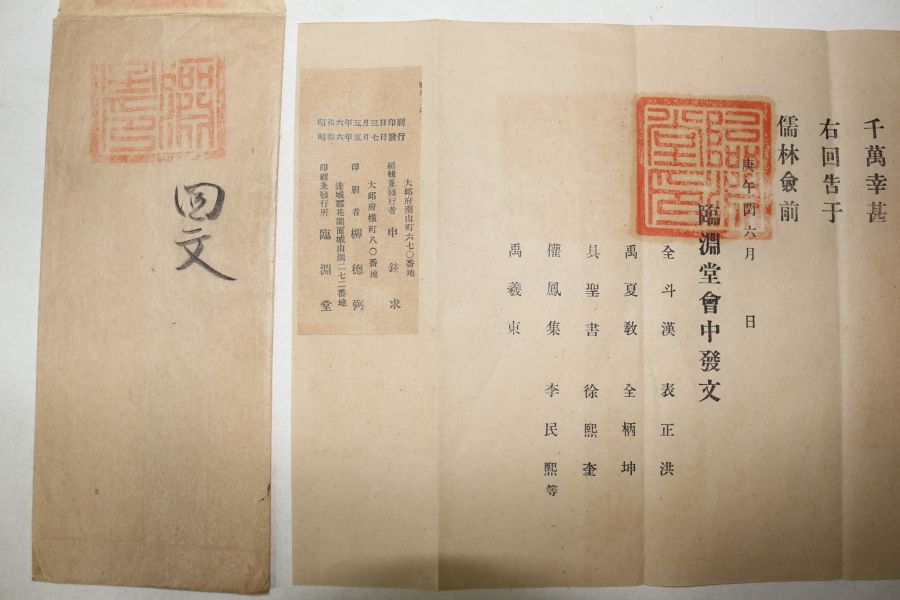 千萬幸甚
右回告于
儒林僉前
庚午閏六月 日
臨淵堂會中發文
全斗漢 表正洪
禹夏敎 全柄坤
具聖書 徐熙奎
權鳳集 李民熙等
禹羲東
昭和六年五月三日印刷
昭和六年五月七日發行
大邱府南山町六七〇番地
編輯兼發行者 申鉉求
大邱府橫町八〇番地
印刷者 柳德弼
達城郡花園面城山洞二七二番地
印刷兼發行所 臨淵堂
回文